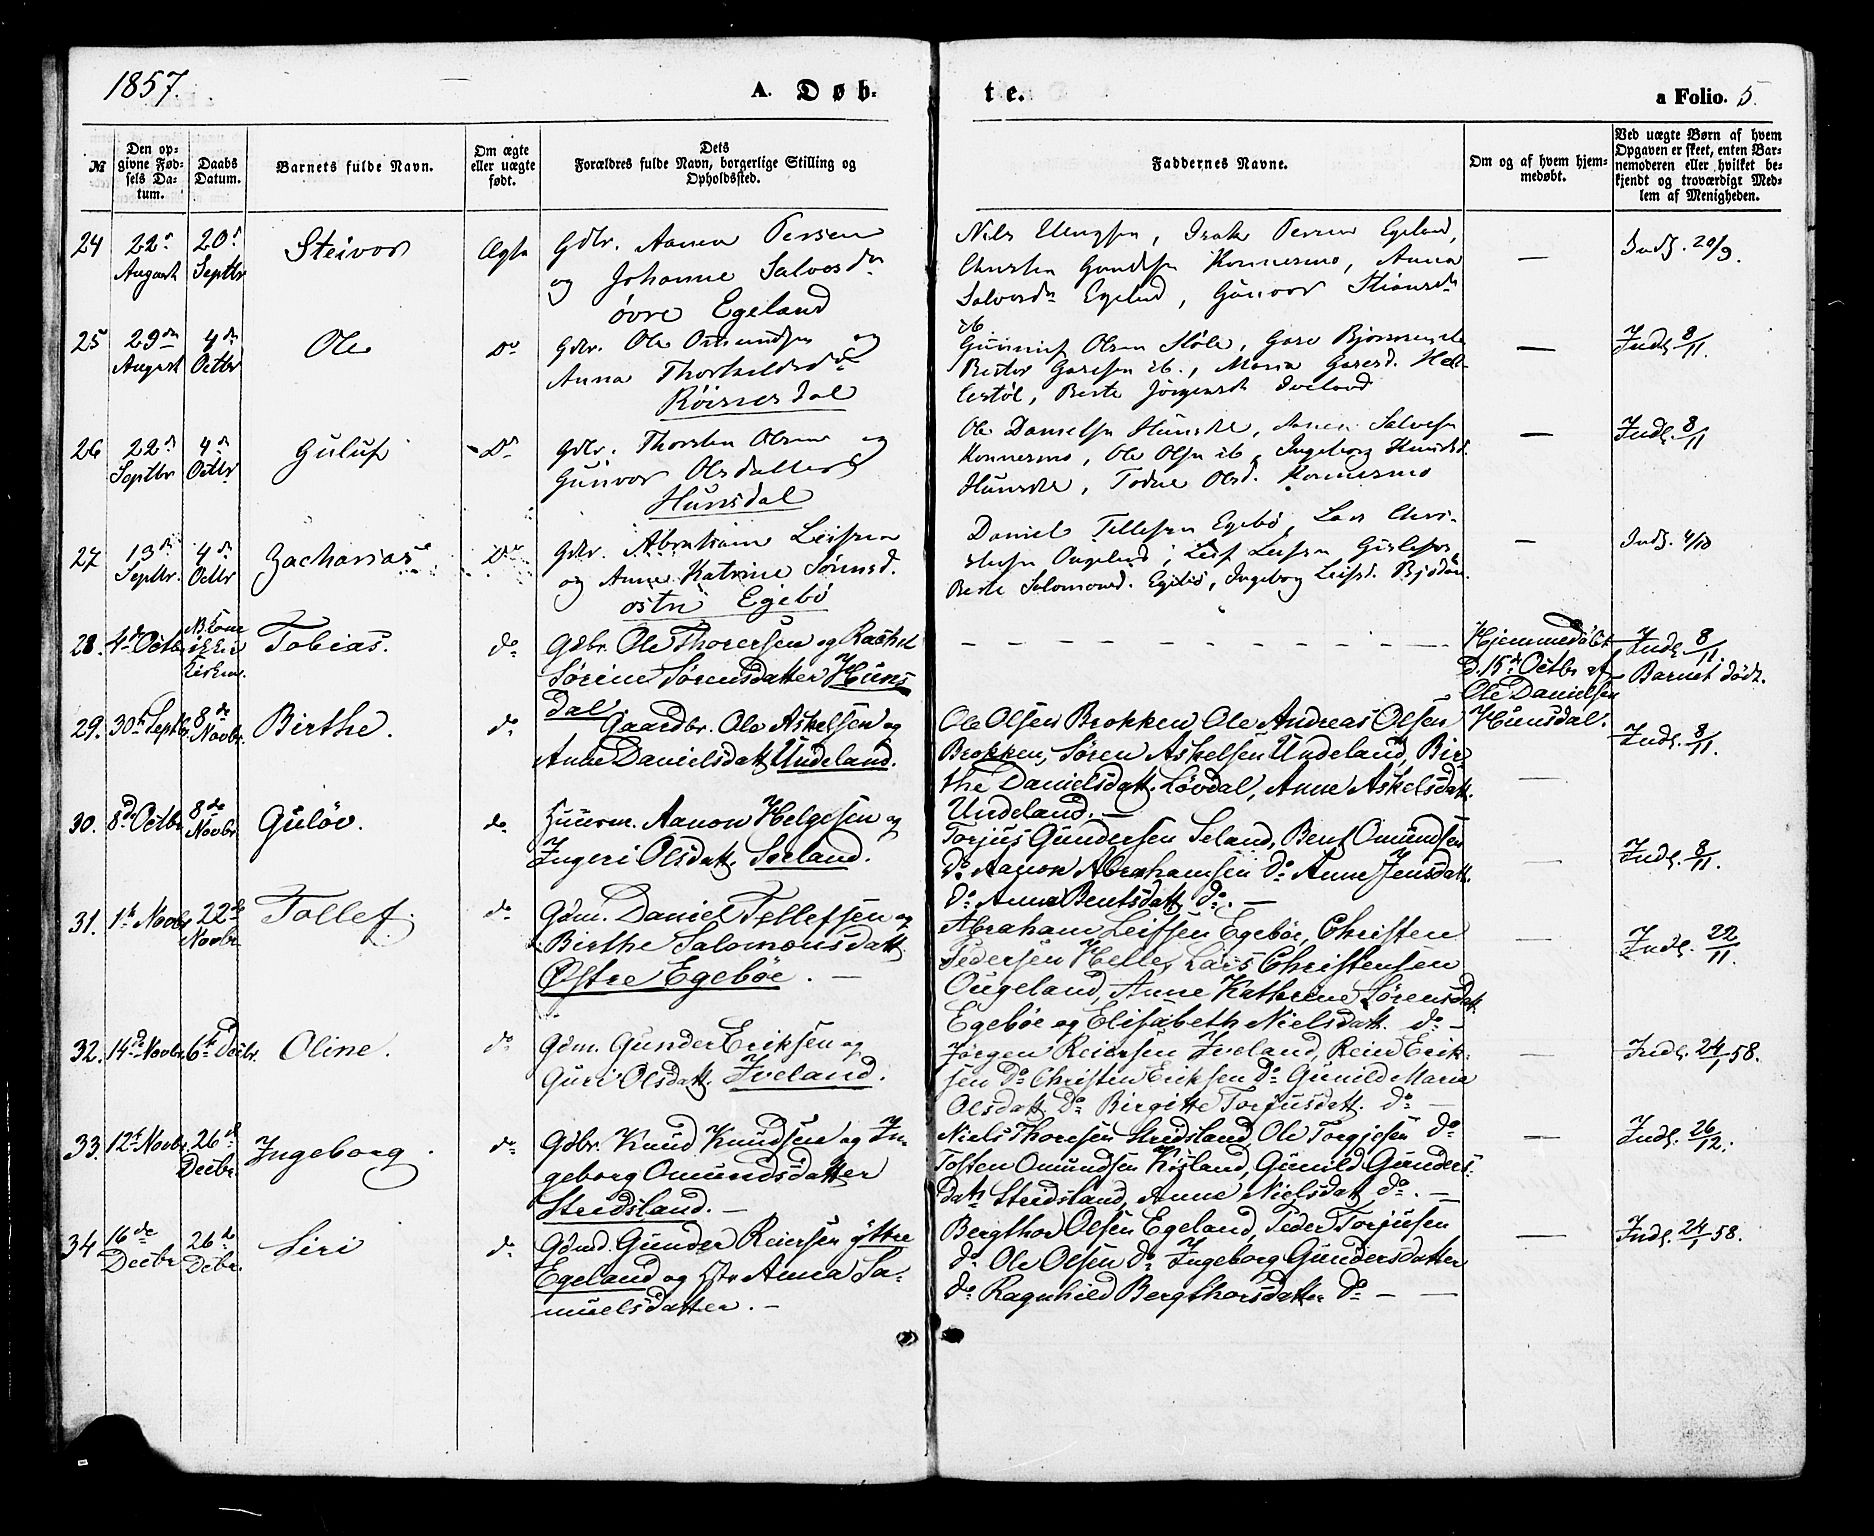 1857.
A. Døb-
te.
a Folio. 5.
№
Den op-
givne Fød-
sels Da-
tum.
Daabs
Datum.
Barnets fulde Navn.
Om ægte
eller uægte
født.
Dets
Forældres fulde Navn, borgerlige Stilling og
Opholdssted.
Faddernes Navne.
Om og af hvem hjem-
medøbt.
Ved uægte Børn af hvem
Opgaven er skeet, enten Bar-
nemoderen eller hvilket be-
kjendt og troværdigt Med-
lem af Menigheden.
24
22
August
20
Septbr
Steivor
Ægte
Gdbr. Aanen Persen
og Johanne Salvesdr
øvre Egeland
Nils Persen Egeland,
Konnesmo, Anna
Salvesdr Egeland, Gunvor
—
Indf. 20/9.
25
29de
August
4de
Octbr
Ole
Do
Gdbr. Ole Osmundsen og
Anna Thorkeldsdr
Røinesdal
ib.
Olsen
ib., Maria
Berte Jørgensdr Iveland
—
Indf. 8/11.
26
22de
Septbr
4de
Octbr
Guluf
Do
Gdbr. Thorsten Olsen og
Gunvor Olsdatter
Hunsdal
Ole Danielsen Salvesen
Konnesmo, Ole Olsen ib, Ingeborg
Todne Olsd. Konnesmo
—
Indf. 8/11
27
13de
Septbr.
4de
Octbr
Zacharias
Do
Gdbr. Abraham Leifsen
og Anne Katrine Sørensd.
østre Egebø
Daniel Tellefsen Egebø, Lars Chri-
stensen Ougeland, Leif Leifsen
Berte Salomonsd. Egebø, Ingeborg Leifsd.
—
Indf. 4/10
28.
4de Octbr
NB kom
ikke i
Kirken.
Tobias.
do
Gdbr. Ole Thorersen og Rachel
Sørine Sørensdatter Huns
dal.
— — — — — — — —
Hjemmedøbt
D. 15de Octbr af
Ole Danielsen
Hunsdal.
Indf. 8/11.
Barnet dødt.
29.
30te Septbr.
8de
Novbr.
Birthe.
do
Gaardbr. Ole Askelsen og
Anne Danielsdatt. Undeland.
Ole Olsen Brokken, Ole Andreas Olsen
Brokken, Søren Askelsen Undeland, Bir-
the Danielsdatt. Løvdal, Anne Askelsdatt.
Undeland. —
—
Indf. 8/11.
30.
8de Octbr
8de
Novbr
Guløv.
do
Huusm. Aanon Helgesen og
Ingeri Olsdatt. Seeland.
Torjus Gundersen Seland, Bent Omundsen
do Aanon Abrahamsen do Anne Jensdatt.
do Anne Bentsdatt. do. —
—
Indf. 8/11.
31.
1te Novbr
22de
Novbr
Tollef.
do
Gdm. Daniel Tellefsen og
Birthe Salomonsdatt.
Østre Egebøe. —
Abraham Leifsen Egebøe, Christen
Pedersen Helle, Lars Christensen
Ougeland, Anne Kathrine Sørensdatt.
Egebøe og Elisabeth Nielsdatt. do —
—
Indf. 22/11.
32.
14de Novbr.
6te Decbr.
Oline.
do
Gdm. Gunder Eriksen og
Guri Olsdatt. Iveland.
Jørgen Reiersen Iveland, Reier Erik-
sen do Christen Eriksen do Gunild Marie
Olsdatt. do Birgitte Torjusdatt. do —
—
Indf. 24/1 58.
33.
12te Novbr
26de
Decbr.
Ingeborg.
do
Gdbr. Knud Knudsen og In-
geborg Omundsdatter
Stridsland. —
Niels Thoresen Stridsland, Ole Torgjesen do
Tosten Omundsen Røisland, Gunild Gunders-
datt. Stridsland, Anne Nielsdatt. do. —
—
Indf. 26/12.
34
16de
Decbr
26de
Debr.
Siri
do
Gdmd. Gunder Reiersen ÿttre
Egeland og Hstr Anna Sa-
muelsdatter. —
Bergthor Olsen Egeland, Peder Torjusen
do Ole Olsen do Ingeborg Gundersdatter
do Ragnhild Bergthorsdatter do —
—
Indf. 24/1 58.